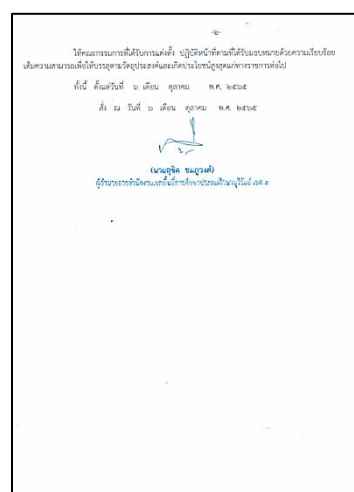 -๒-
ให้คณะกรรมการที่ได้รับการแต่งตั้ง ปฏิบัติหน้าที่ตามที่ได้รับมอบหมายด้วยความเรียบร้อย
เต็มความสามารถเพื่อให้บรรลุตามวัตถุประสงค์และเกิดประโยชน์สูงสุดแก่ทางราชการต่อไป
ทั้งนี้ ตั้งแต่วันที่ ๖ เดือน ตุลาคม พ.ศ. ๒๕๖๕
สั่ง ณ วันที่ ๖ เดือน ตุลาคม พ.ศ. ๒๕๖๕
(นายสุชิต ชมภูวงศ์)
ผู้อำนวยการสำนักงานเขตพื้นที่การศึกษาประถมศึกษาบุรีรัมย์ เขต ๓